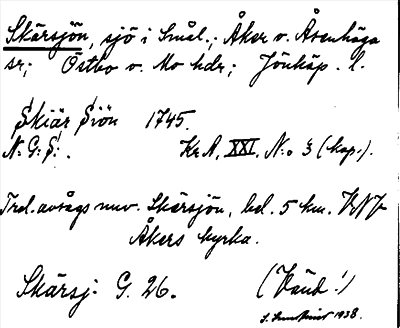 Skärsjön, sjö i Smål.; Åker o. Åsenhöga
sr; Östbo o. Mo hdr; Jönköp. l.
Skiär Siön 1745.
N: G: S: . Kr. A, XXI, N:o 3 (kop.).
Trol. avsågs nuv. Skärsjön, bel. 5 km. VNV
Åkers kyrka.
Skärsj: G. 26. (Känd!)
1938.